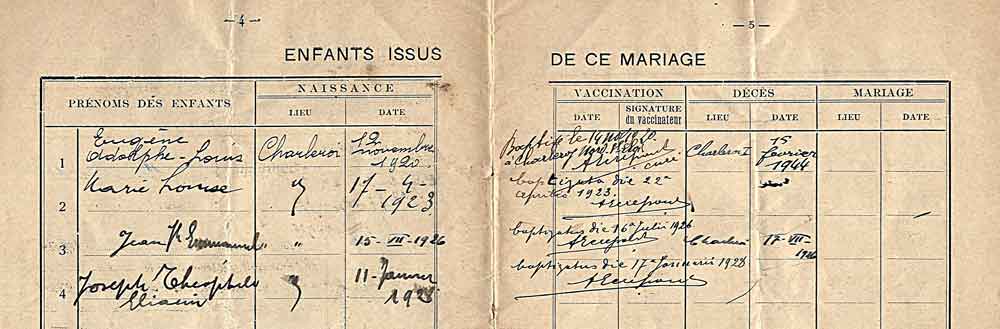 — 4 —
ENFANTS ISSUS
PRÉNOMS DES ENFANTS
NAISSANCE
LIEU DATE
1 Eugène Adolphe-Louis Charleroi 12 novembre 1920
2 Marie Louise " 17-4-1923
3 Jean Emmanuel " " 15-VII-1926
4 Joseph-Théophile " 11-Janvier 1928
— 5 —
DE CE MARIAGE
VACCINATION DÉCÈS MARIAGE
DATE SIGNATURE du vaccinateur LIEU DATE LIEU DATE
Baptisé le 14 1920
à Charleroi curé Charleroi 15 février 1944
baptizata die 22a
Aprilis 1923.
baptizatus die 16a Julii 1926
Charleroi 17-VII-1926
baptizatus die 17a Januarii 1928